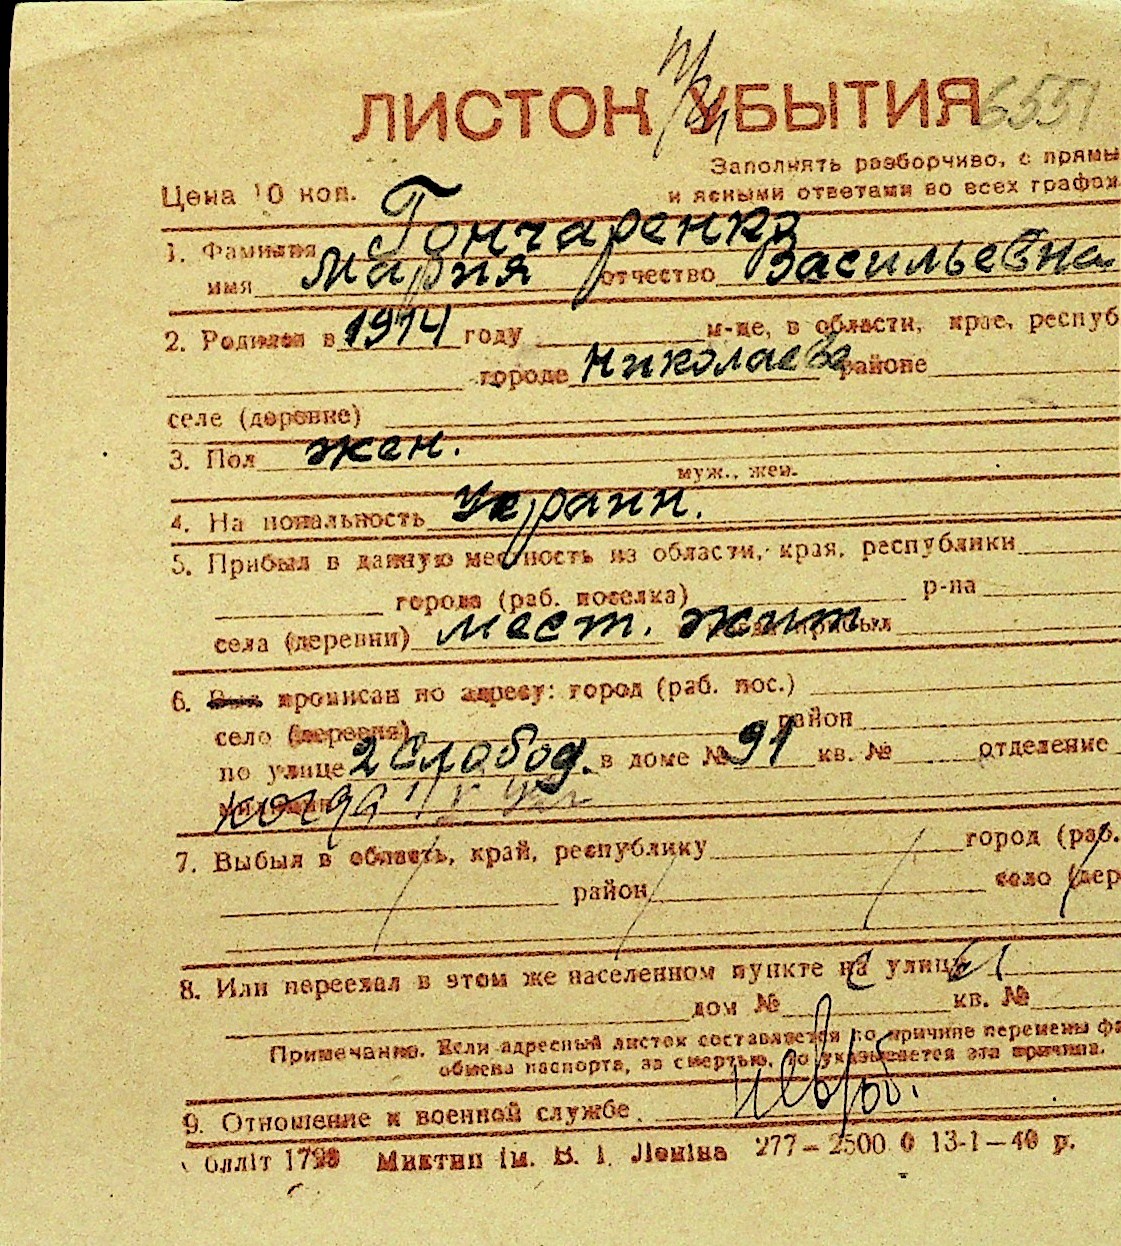 ЛИСТОК УБЫТИЯ 6551
Заполнять разборчиво, с прямы
Цена 10 коп. и ясными ответами во всех графах
1. Фамилия Гончаренко
имя Мария отчество Васильевна
2. Родился в 1914 году м-це, в области, крае, респуб
городе Николаеве районе
селе (деревне)
3. Пол жен.
муж., жен.
4. Национальность Украин.
5. Прибыл в данную местность из области, края, республики
города (раб. поселка) р-на
села (деревни) мест. жит.
6. Был прописан по адресу: город (раб. пос.)
село (деревня) район
по улице 2 Слобод. в доме № 91 кв. № отделение
милиции когда
7. Выбыл в область, край, республику город (раб.
район село (дер
8. Или переехал в этом же населенном пункте на улицу
дом № кв. №
Примечание. Если адресный листок составляется по причине перемены фа
обмена паспорта, за смертью, то указывается эта причина.
9. Отношение к военной службе невоб.
блліт 1793 Миктип ім. В. І. Леніна 277—2500 0 13-1—40 р.